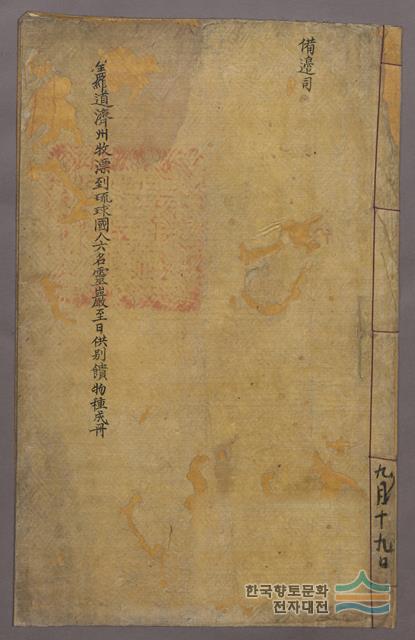 備邊司
全羅道濟州牧漂到琉球國人六名靈巖至日供別饋物種成冊
九月十九日
한국향토문화
전자대전